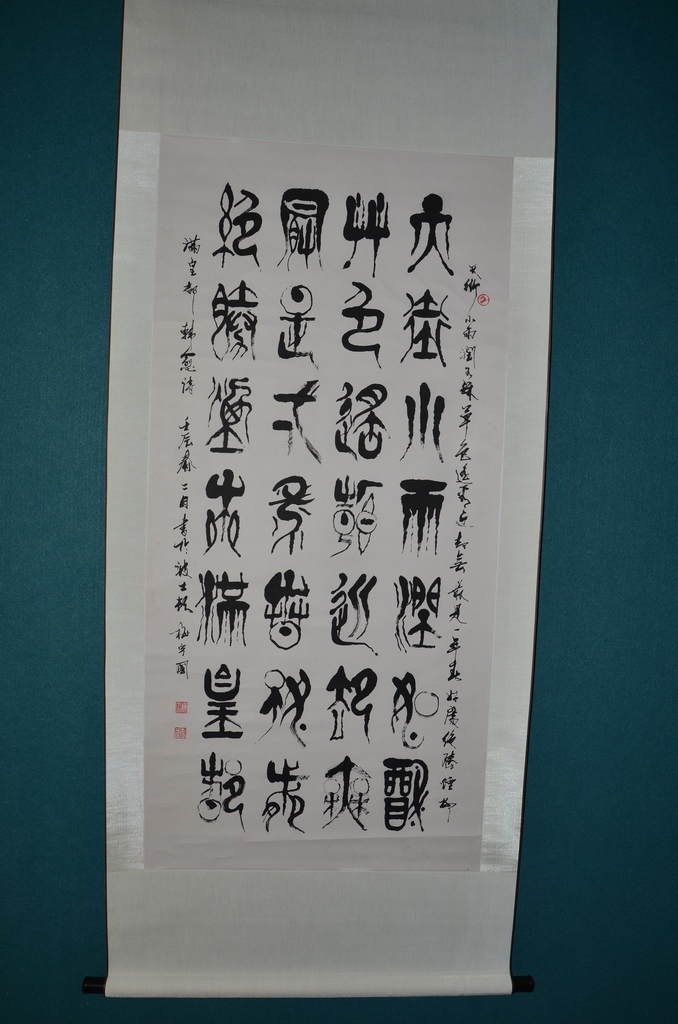 天街小雨潤如酥草色遙看近却無最是一年春好處絕勝煙柳
天街小雨潤如酥
艸色遙看近卻無
最是弌年春好處
絕勝煙柳滿皇都
滿皇都 韓愈詩 壬辰春二月書於波士頓